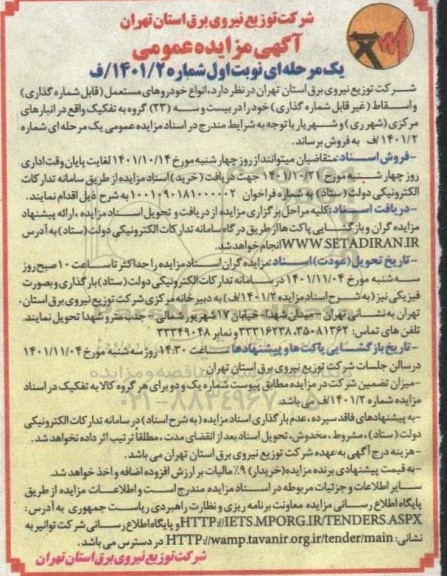 شرکت توزیع نیروی برق استان تهران
آگهی مزایده عمومی
یک مرحله ای نوبت اول شماره ۱۴۰۱/۲/ف
شرکت توزیع نیروی برق استان تهران در نظر دارد، انواع خودروهای مستعمل (قابل شماره گذاری)
و اسقاط (غیر قابل شماره گذاری) خود را در بیست و سه (۲۳) گروه به تفکیک واقع در انبارهای
مرکزی (شهر ری) و شهریار با توجه به شرایط مندرج در اسناد مزایده عمومی یک مرحله ای شماره
۱۴۰۱/۲/ف به فروش برساند.
-فروش اسناد: متقاضیان میتوانند از روز چهارشنبه مورخ ۱۴۰۱/۱۰/۱۴ لغایت پایان وقت اداری
روز چهارشنبه مورخ ۱۴۰۱/۱۰/۲۱ جهت دریافت (خرید) اسناد مزایده از طریق سامانه تدارکات
الکترونیکی دولت (ستاد) به شماره فراخوان ۱۰۰۱۰۹۰۱۸۱۰۰۰۰۰۲ به شرح ذیل اقدام نمایند.
-دریافت اسناد: کلیه مراحل برگزاری مزایده از دریافت و تحویل اسناد مزایده، ارائه پیشنهاد
مزایده گران و بازگشایی پاکت ها از طریق درگاه سامانه تدارکات الکترونیکی دولت (ستاد) به آدرس
WWW.SETADIRAN.IR انجام خواهد شد.
-تاریخ تحویل (عودت) اسناد: مزایده گران اسناد مزایده را حداکثر تا ساعت ۱۰ صبح روز
سه شنبه مورخ ۱۴۰۱/۱۱/۰۴ در سامانه تدارکات الکترونیکی دولت (ستاد) بارگذاری و بصورت
فیزیکی نیز (به شرح اسناد مزایده ۱۴۰۱/۲/ف) به دبیرخانه مرکزی شرکت توزیع نیروی برق استان
تهران به نشانی تهران -میدان شهدا- خیابان ۱۷ شهریور شمالی - جنب مترو شهدا تحویل نمایند.
تلفن های تماس: ۳۵۰۸۱۳۶۲، ۳۳۳۱۶۲۳۸ و نمابر ۳۳۳۴۹۰۴۸
-تاریخ بازگشایی پاکت ها و پیشنهادها: ساعت ۱۴:۳۰ روز سه شنبه مورخ ۱۴۰۱/۱۱/۰۴
در سالن جلسات شرکت توزیع نیروی برق استان تهران
-میزان تضمین شرکت در مزایده مطابق پیوست شماره یک و دو برای هر گروه کالا به تفکیک در اسناد
مزایده شماره ۱۴۰۱/۲/ف می باشد.
-به پیشنهادهای فاقد سپرده، عدم بارگذاری اسناد مزایده (به شرح اسناد) در سامانه تدارکات الکترونیکی
دولت (ستاد)، مشروط، مخدوش، تحویل اسناد بعد از انقضای مدت، مطلقاً ترتیب اثر داده نخواهد شد.
-هزینه درج آگهی به عهده شرکت توزیع نیروی برق استان تهران می باشد.
-به قیمت پیشنهادی برنده مزایده (خریدار) ۹٪ مالیات بر ارزش افزوده اضافه و اخذ خواهد شد.
سایر اطلاعات و جزئیات مربوطه در اسناد مزایده مندرج است و اطلاعات مزایده از طریق
پایگاه اطلاع رسانی مزایده معاونت برنامه ریزی و نظارت راهبردی ریاست جمهوری به آدرس:
HTTP://IETS.MPORG.IR/TENDERS.ASPX و پایگاه اطلاع رسانی شرکت توانیر به
نشانی: HTTP://wamp.tavanir.org.ir/tender/main در دسترس می باشد.
شرکت توزیع نیروی برق استان تهران